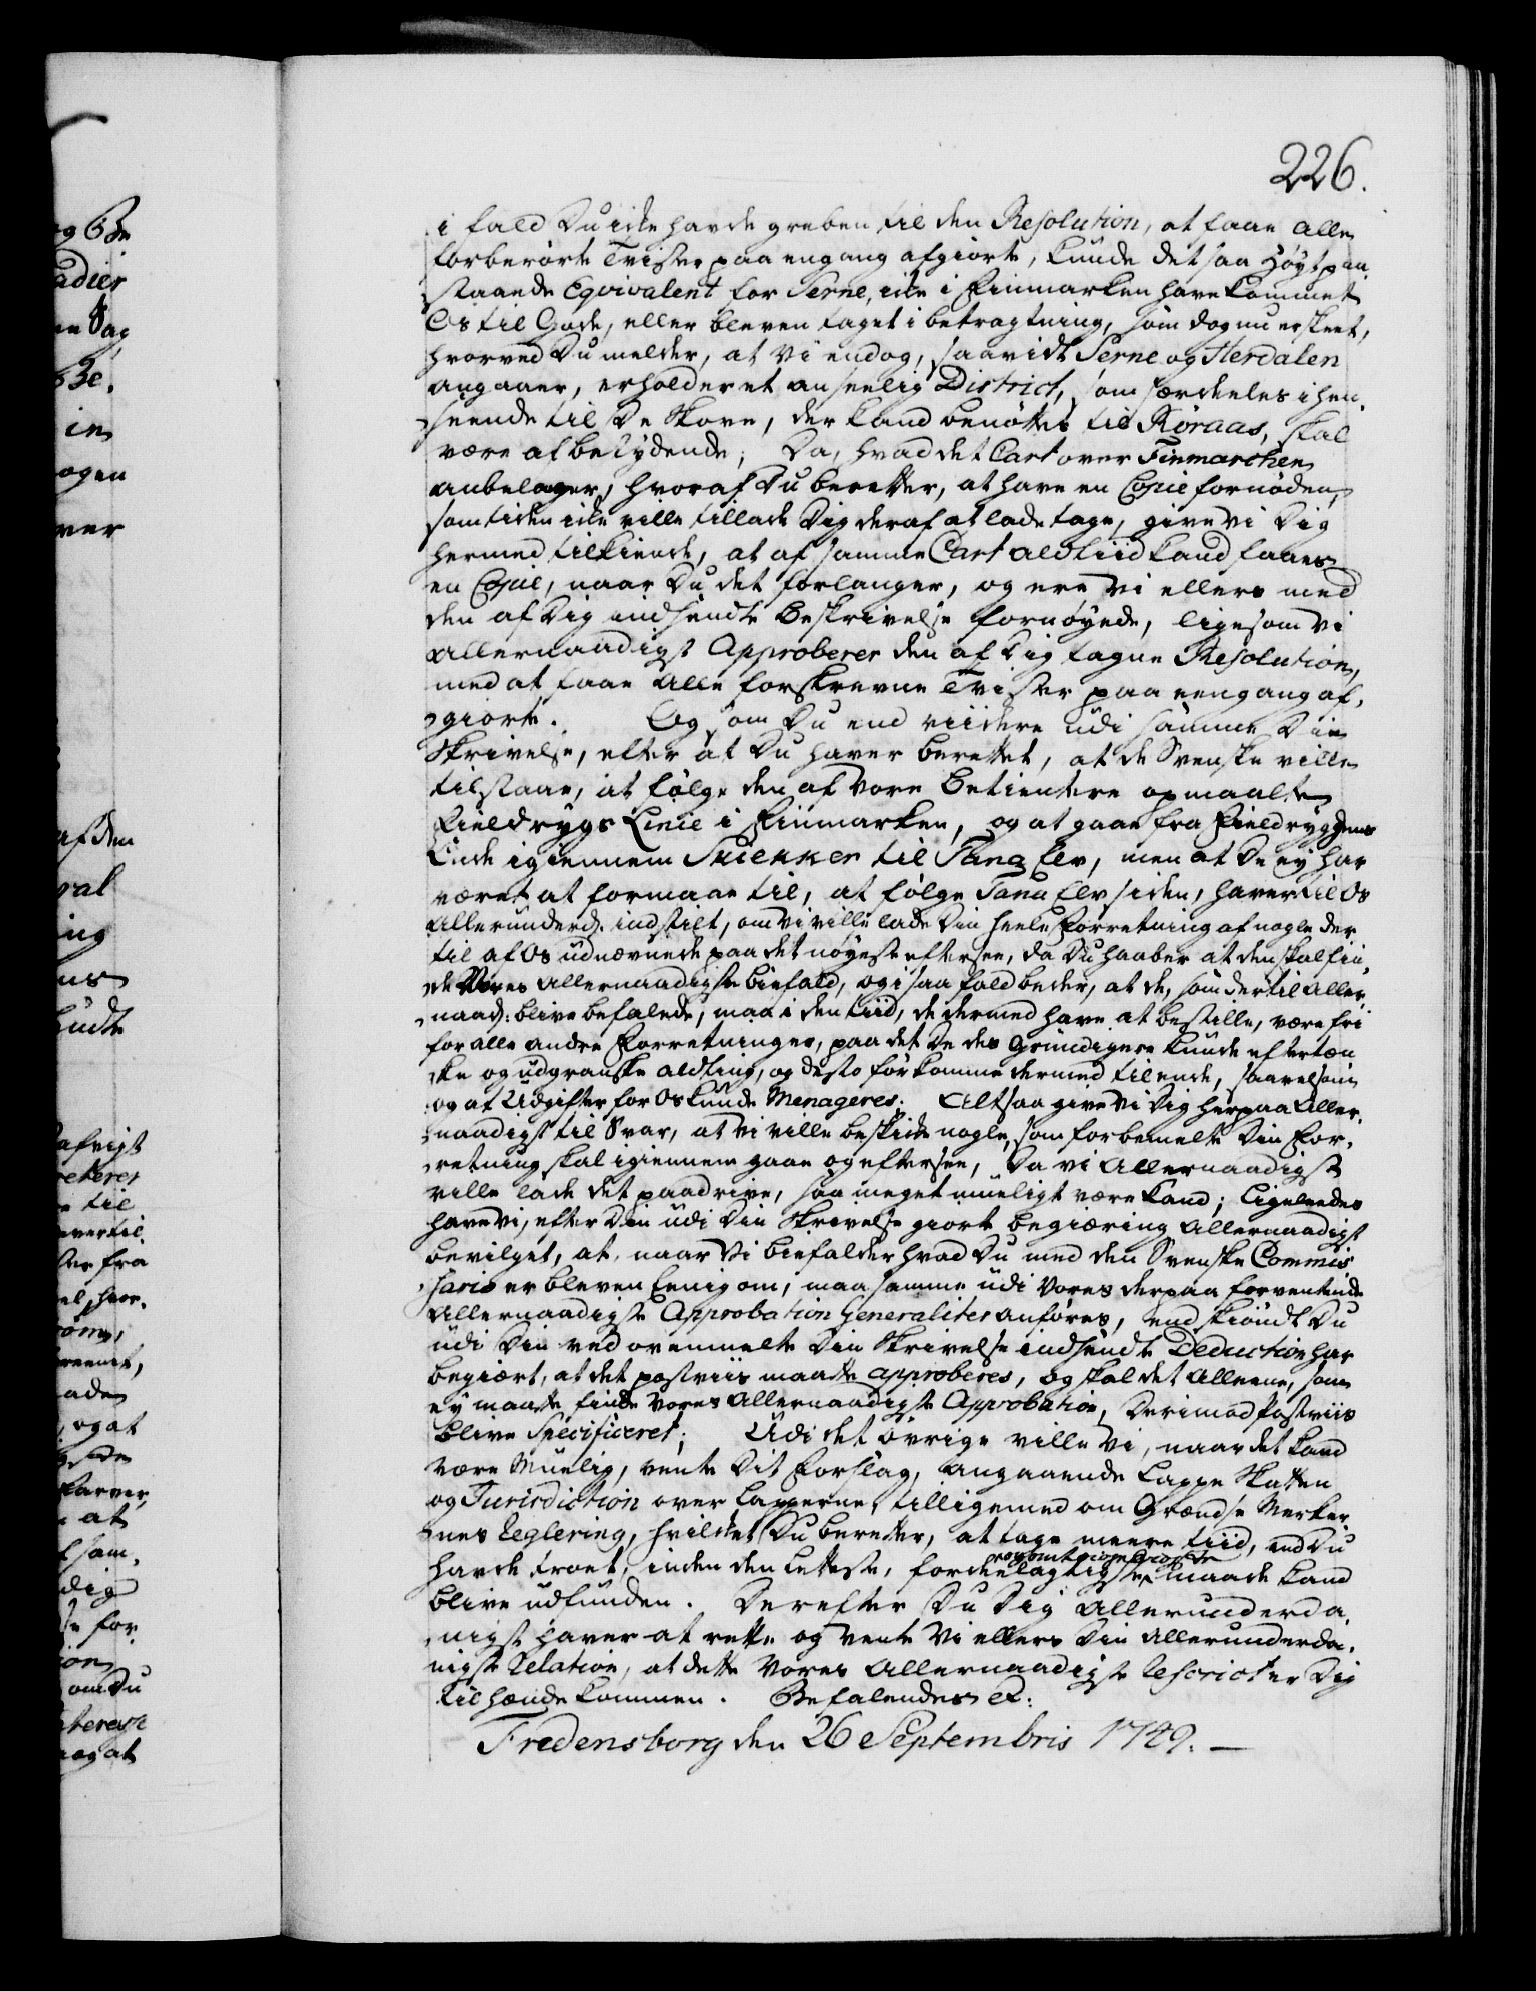 226.
i fald Du icke havde greben til den Resolution, at faae alle
forberørte Tvister paa engang afgiorte, kunde det saa høyt paa-
staaende Eqvivalent for Serne, icke i Finmarken have kommet
Os til Gode, eller bleven taget i betragtning, som dog nu er skeet,
hvorved Du melder, at Vi endog, saavidt Serne og Herdalen
angaaer, erholder et anseelig District, som særdeeles i hen-
seende til De Skove, der kand benøttes til Røraas, skal
være af betydende; Da, hvad det Cart over Finmarchen
anbelanger, hvoraf Du beretter, at have en Copie fornøden,
som tiden icke ville tillade Dig deraf at lade tage, give Vi Dig
hermed tilkiende, at af samme Cart altiid kand faaes
en Copie, naar Du det forlanger, og ere Vi ellers med
den af Dig indsendte Beskrivelse fornøyede, ligesom Vi
Allernaadigst Approberer den af Dig tagne Resolution,
med at faae alle forskrevne Tvister paa eengang af-
giort. Og som Du end viidere udi samme Din
Skrivelse, efter at Du haver berettet, at de Svenske ville
tilstaae, at følge den af Vore Betientere opmaalte
Fieldrygs Linie i Finmarken, og at gaae fra Fieldryggens
Ende igiennem Skiekker til Tana Elv, men at De ey har
været at formaae til, at følge Tana Elv siden, haver til Os
Allerunderd. indstilt, om Vi ville lade Din heele Forretning af nogle der
til af Os udnævnede paa det nøyeste eftersee, da Du haaber at den skal fin-
de Vores Allernaadigste Biefald, og i saa fald beder, at de, som dertil Aller-
naad: blive befalede, maa i den tiid, de dermed have at bestille, være fri
for alle andre Forretninger, paa det De des grundigere kunde eftertæn
ke og udgranske alting, og desto før komme dermed til ende, saavelsom
og at Udgifter for Os kunde Menageres. Altsaa give Vi Dig herpaa Aller-
naadigst til Svar, at Vi ville beskicke nogle, som forbemelte Din For-
retning skal igiennem gaae og eftersee, Da Vi Allernaadigst
ville lade det paadrive, saa meget mueligt være kand; Ligeleedes
have Vi, efter Din udi Din Skrivelse giorte begiæring Allernaadigst
bevilget, at naar Vi biefalder hvad Du med den Svenske Commis
sario er bleven Eenig om, maa samme udi Vores derpaa forventende
Allernaadigste Approbation Generaliter anføres, end skiøndt Du
udi Din ved ovenmelte Din Skrivelse indsendte Deduction har
begiært, at det postviis maatte approberes, og skal det alleene, som
ey maatte finde Vores Allernaadigste Approbation, Derimod Postviis
blive Specificeret; Udi det øvrige ville Vi, naar det kand
være Muelig, vente Dit Forslag, angaaende Lappe Skatten
og Jurisdiction over Lapperne, tilligemed om Grændse Merker-
nes Reglering, hvilket Du beretter, at tage meere tiid, end Du
havde troet, inden den letteste, fordeelagtigste maade kand
blive udfunden. Derefter Du Dig Allerunderda-
nigst haver at rette og vente Vi ellers Din Allerunderda-
nigste Relation, at dette Vores Allernaadigste Rescript er Dig
til hænde kommen. Befalendes &c:
Fredensborg den 26 Septembris 1749.